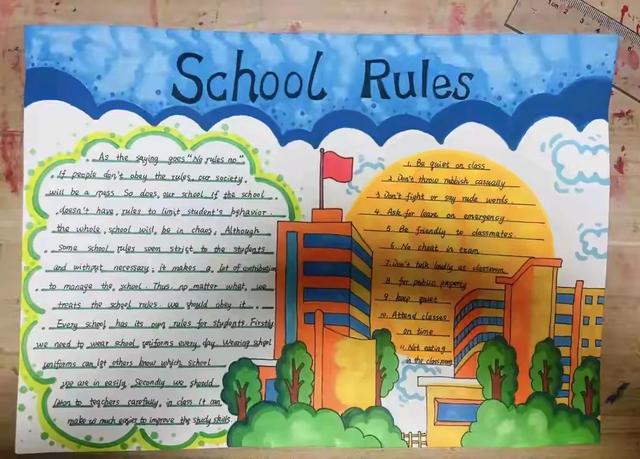 School Rules
As the saying goes "No rules no"
If people don't obey the rules, our society
will be a mass. So does our school. If the school
doesn't have rules to limit student's behavior.
the whole school will be in chaos, Although
some school rules seen strict to the students
and without necessary, it makes a lot of contribution
to manage the school. Thus no matter what we
treats the school rules. we should obey it.
Every school has its own rules for students. Firstly
we need to wear school uniforms every day. Wearing school
uniforms can let others know which school
we are in easily. Secondly we should
listen to teachers carefully in class. It can
make so much easier to improve the study skills.
1. Be quiet on class
2. Don't throw rubbish casually
3. Don't fight or say rude words
4. Ask for leave on emergency
5. Be friendly to classmates.
6. No cheat in exam
7. Don't talk loudly at classroom
8 for public property
9. keep quiet
10. Attend classes
on time
11. Not eating
in the classroom